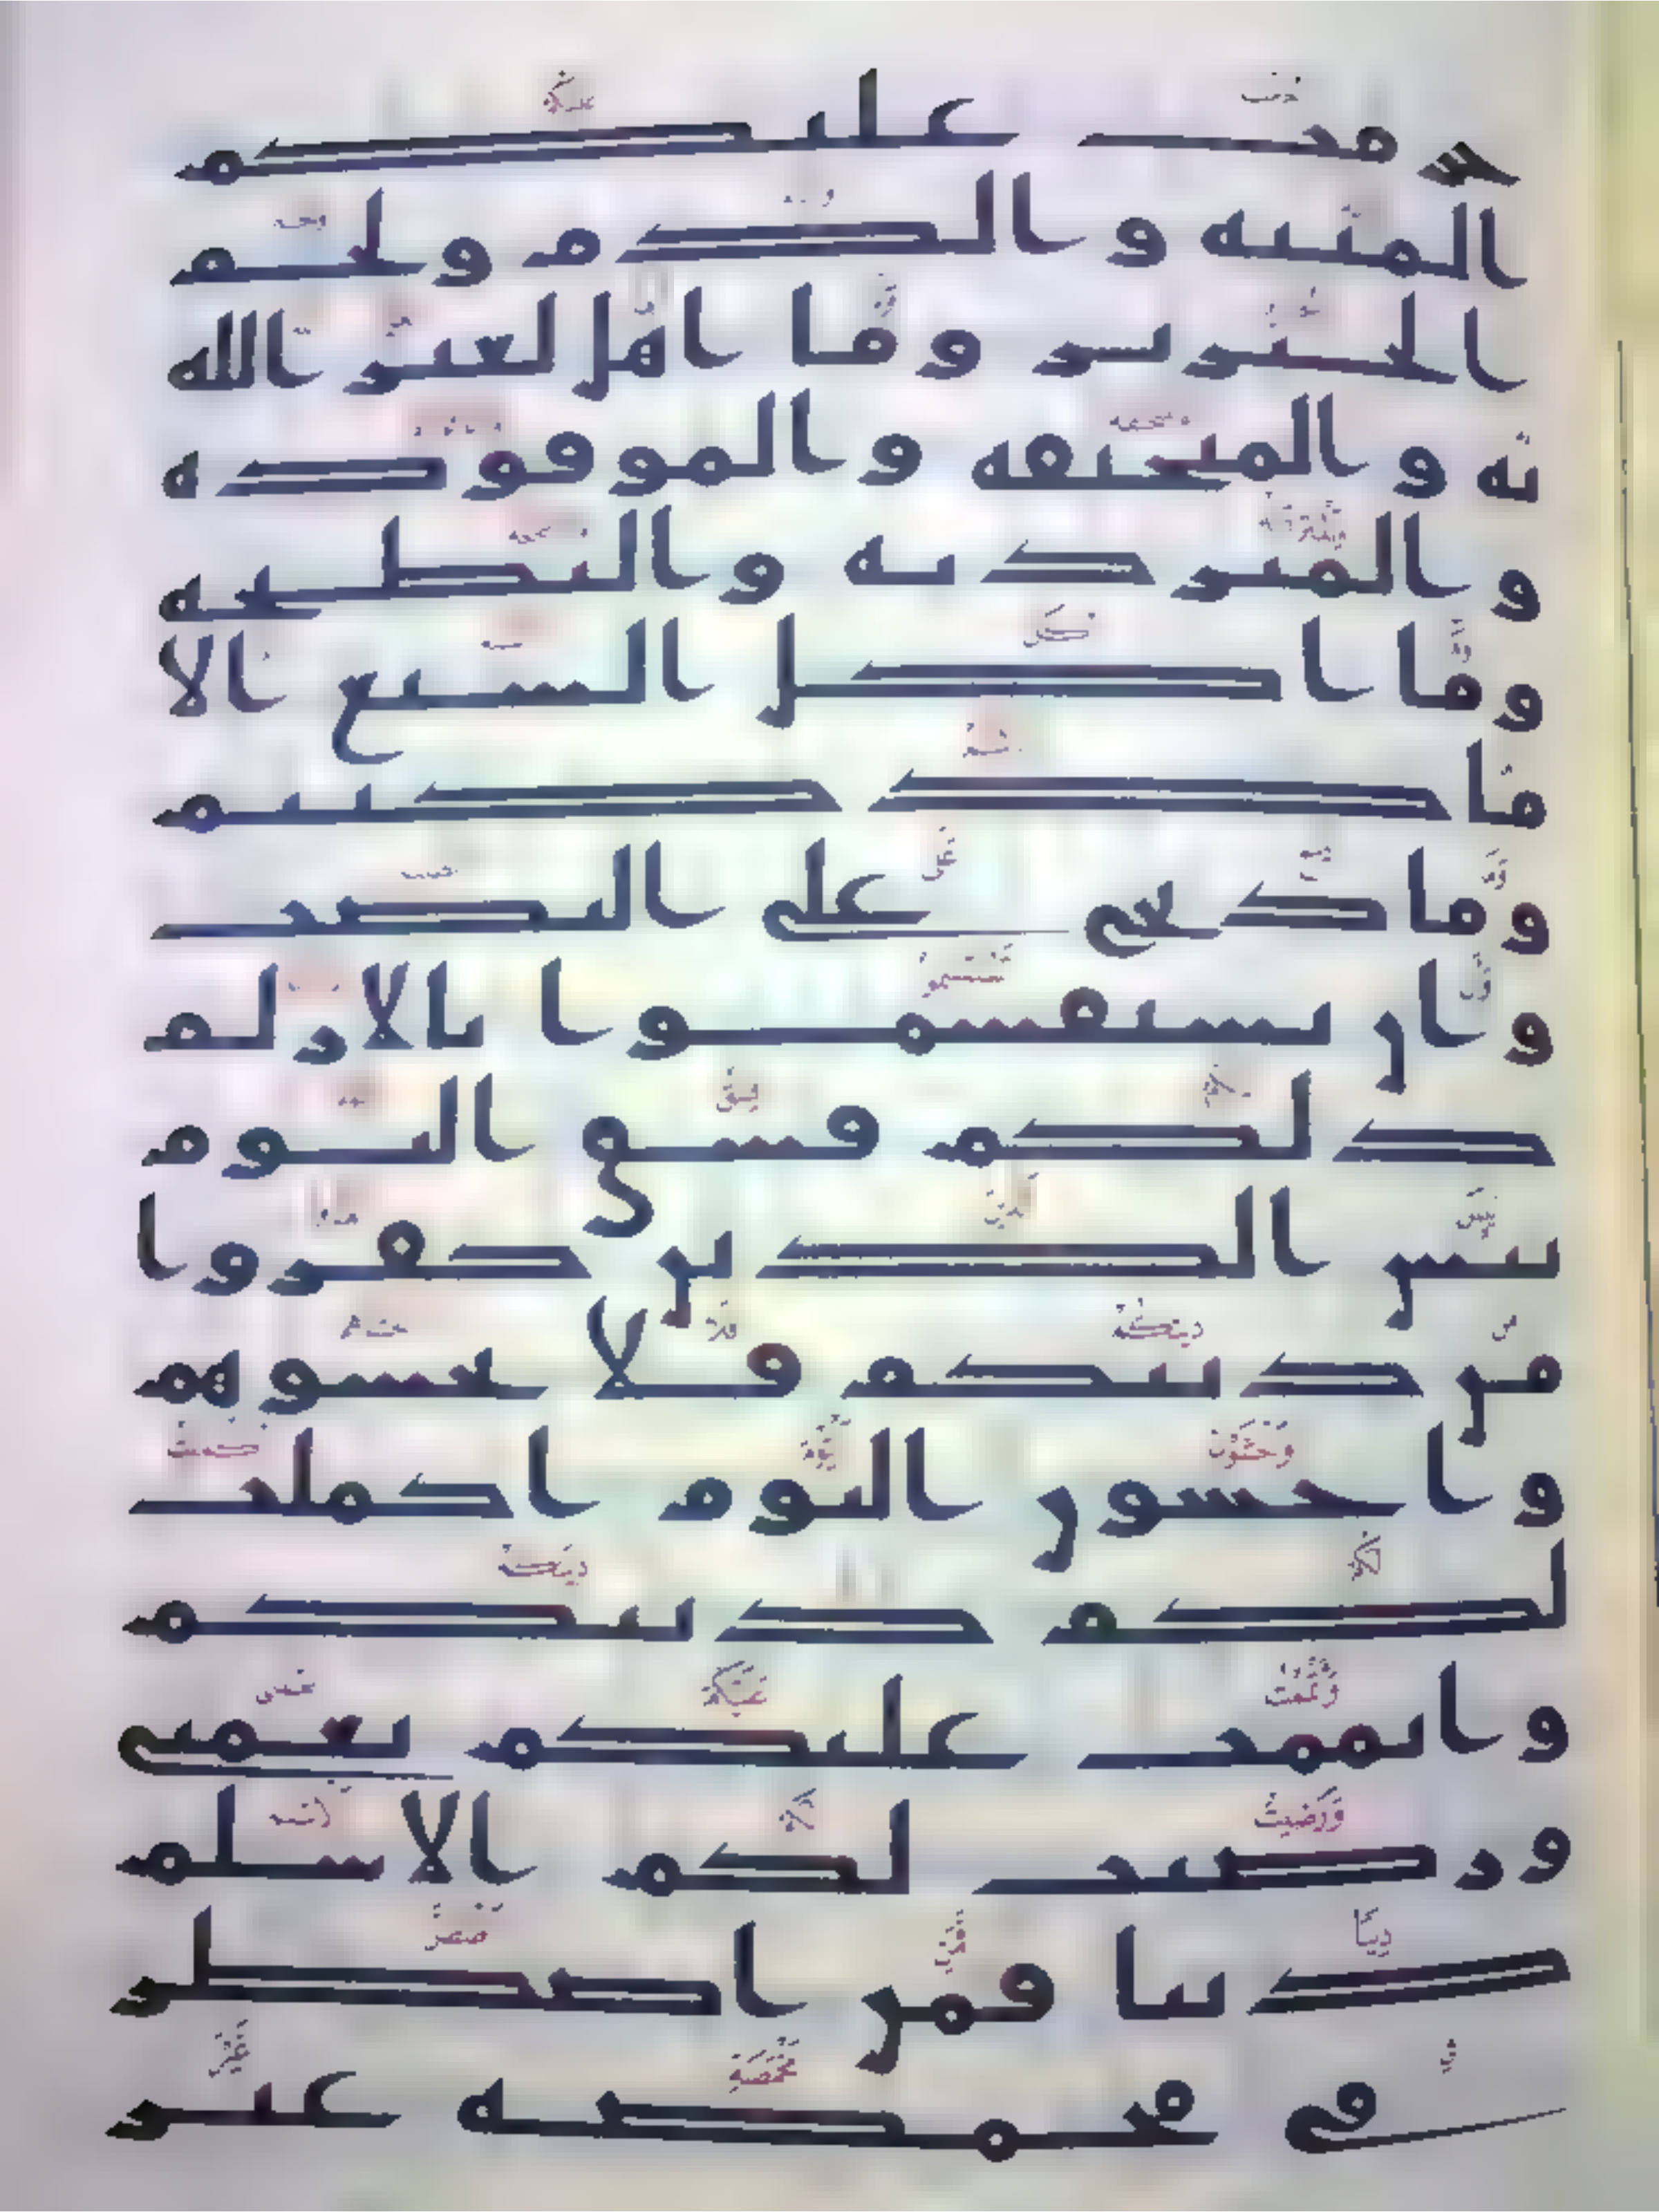 حرمت عليكم
الميتة والدم ولحم
الخنزير وما اهل لغير الله
به والمنخنقة والموقوذة
والمتردية والنطيحة
وما اكل السبع الا
ما ذكيتم
وما ذبح على النصب
وان تستقسموا بالازلم
ذلكم فسق اليوم
يئس الذين كفروا
من دينكم فلا تخشوهم
واخشون اليوم اكملت
لكم دينكم
واتممت عليكم نعمتي
ورضيت لكم الاسلم
دينا فمن اضطر
في مخمصة غير